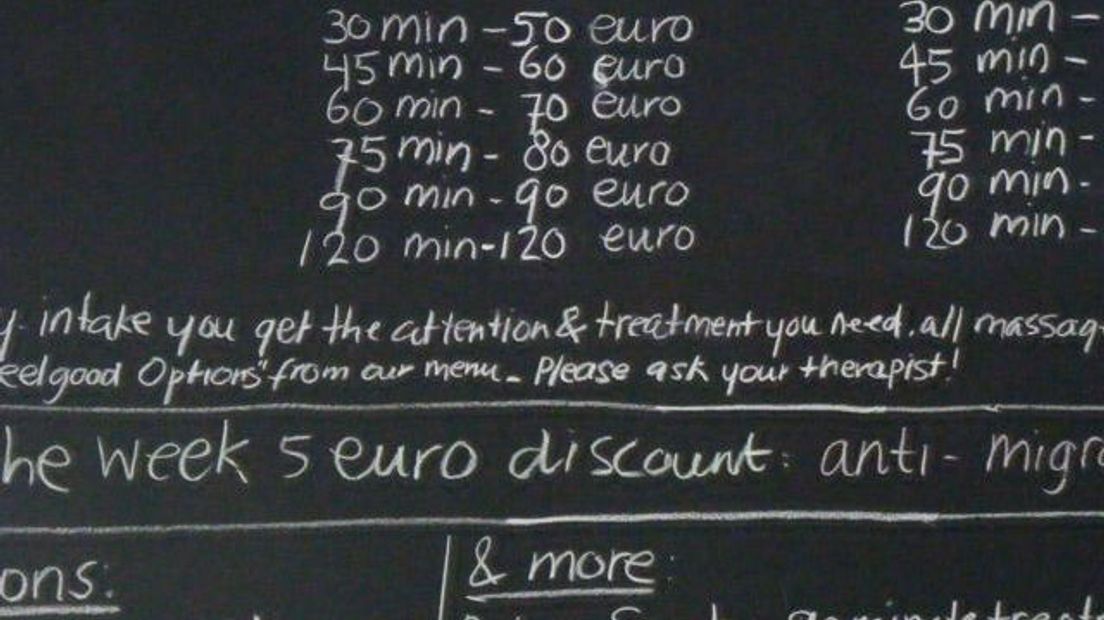 30 min - 50 euro
45 min - 60 euro
60 min - 70 euro
75 min - 80 euro
90 min - 90 euro
120 min-120 euro
30 min -
45 min -
60 min -
75 min -
90 min -
120 min -
intake you get the attention & treatment you need. all massag
eelgood Options" from our menu. Please ask your therapist!
he week 5 euro discount: anti-migr
ons:
& more: